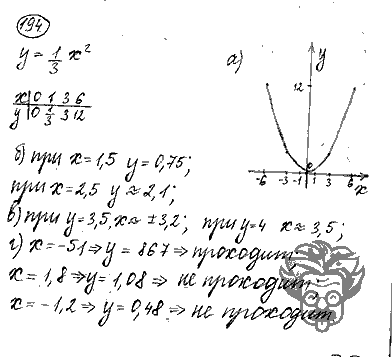 194
y = 1/3 x²
а)
y
12
x 0 1 3 6
y 0 1/3 3 12
-6 -3 -1 0 1 3 6 x
б) при x = 1,5 y = 0,75;
при x = 2,5 y ≈ 2,1;
в) при y = 3,5, x ≈ ±3,2; при y = 4 x ≈ 3,5;
г) x = -51 ⇒ y = 867 ⇒ проходит;
x = 1,8 ⇒ y = 1,08 ⇒ не проходит;
x = -1,2 ⇒ y = 0,48 ⇒ не проходит